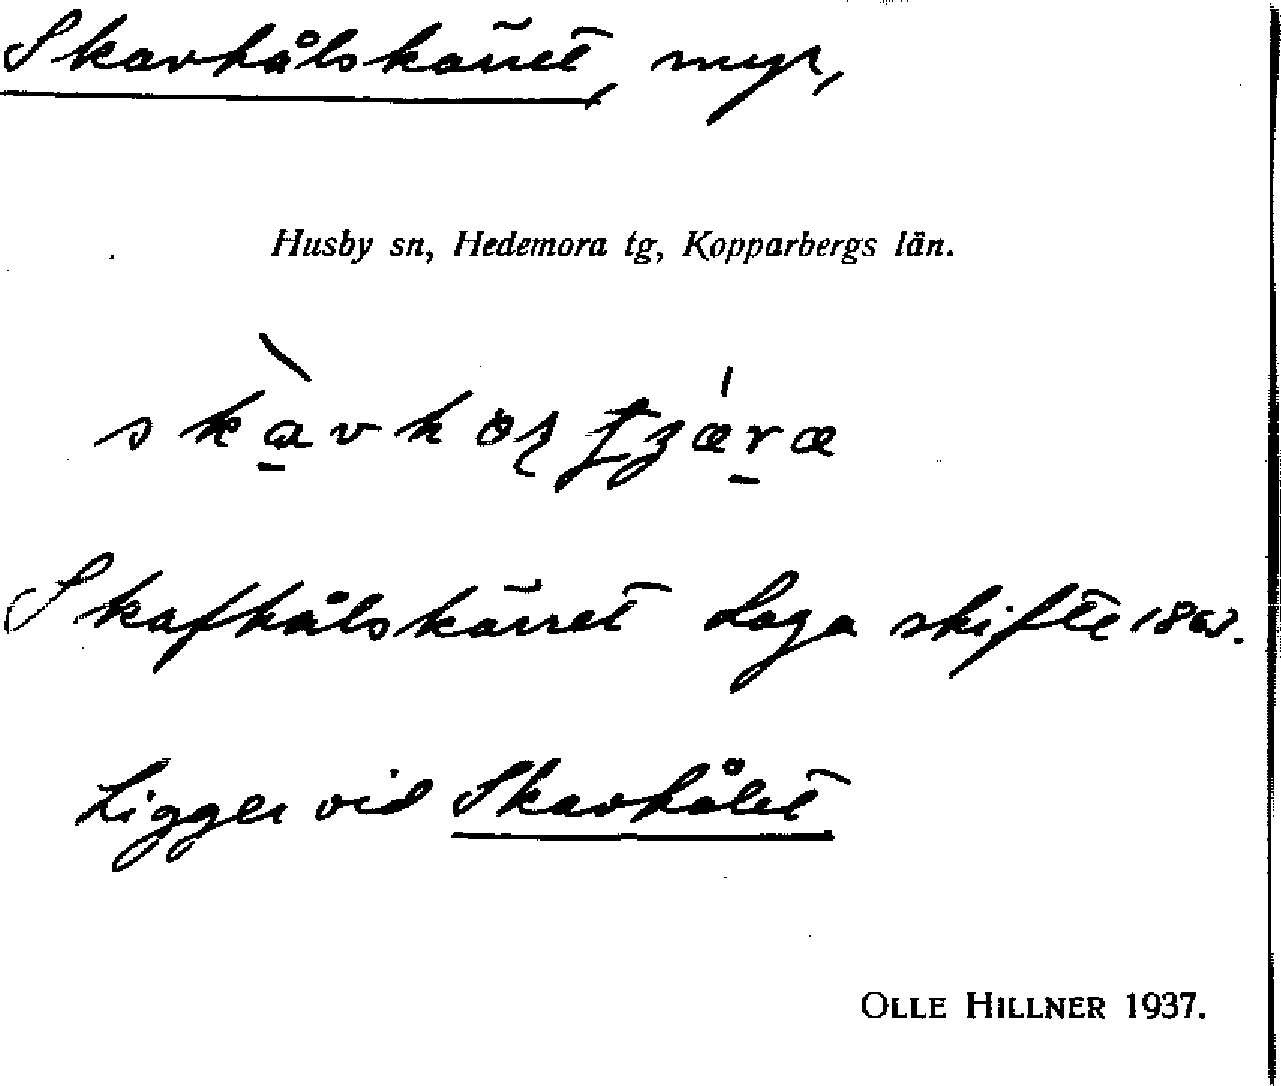 Skavhålskärret, myr,
Husby sn, Hedemora tg, Kopparbergs län.
Skafhålskärret Laga skifte
Ligger vid Skavhålet
OLLE HILLNER 1937.